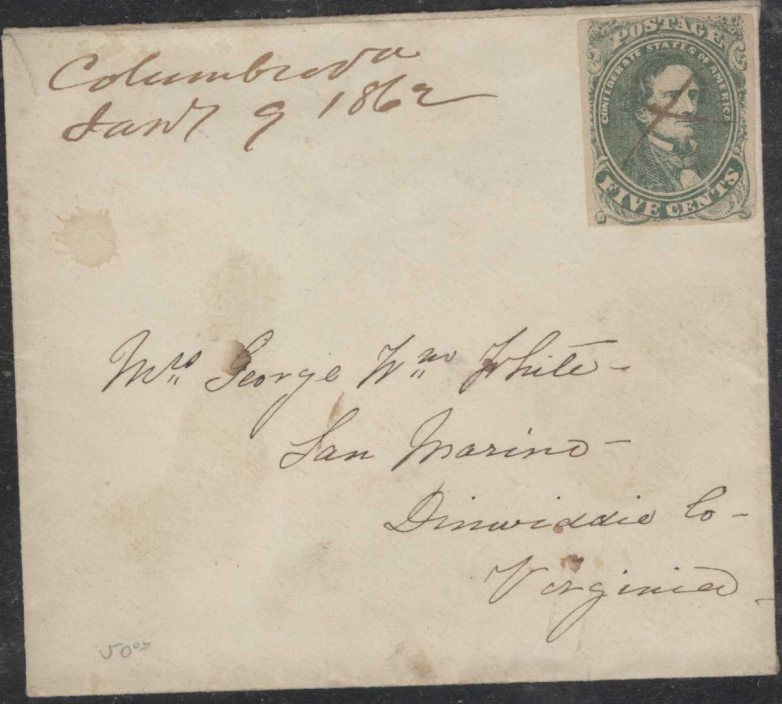 Columbia Va
Jany 9 1862
POSTAGE
CONFEDERATE STATES OF AMERICA
FIVE CENTS
Mrs. George Wm White -
San Marino -
Dinwiddie Co -
Virginia -
50 00